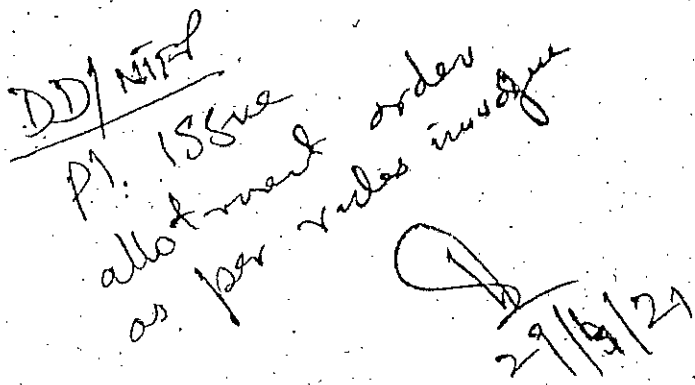 DD/NTFP
Pl. issue
allotment order
as per rules in vogue